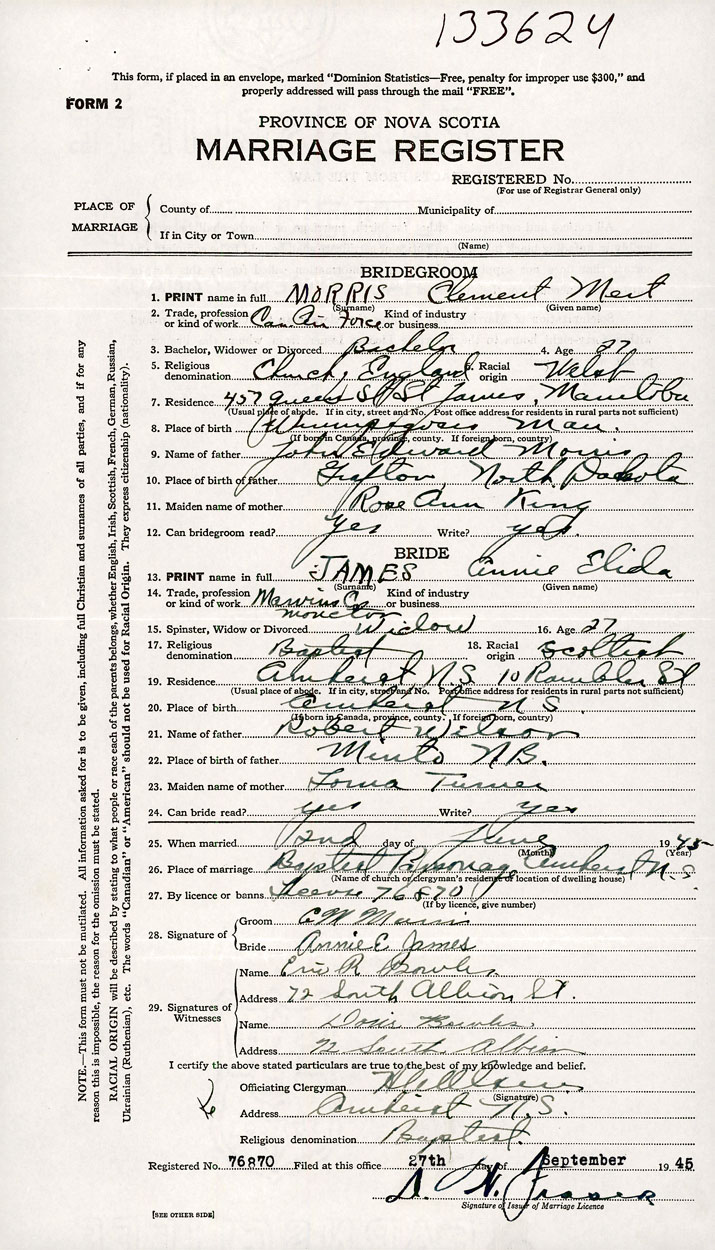 133624
This form, if placed in an envelope, marked "Dominion Statistics—Free, penalty for improper use $300," and
properly addressed will pass through the mail "FREE".
FORM 2
PROVINCE OF NOVA SCOTIA
MARRIAGE REGISTER
REGISTERED No.
(For use of Registrar General only)
PLACE OF MARRIAGE
County of Municipality of
If in City or Town
(Name)
BRIDEGROOM
1. PRINT name in full MORRIS Clement Mert
(Surname) (Given name)
2. Trade, profession or kind of work Can. Air Force Kind of industry or business
3. Bachelor, Widower or Divorced Bachelor 4. Age 27
5. Religious denomination Church, England 6. Racial origin Welsh
7. Residence 457 Queen St St James, Manitoba
(Usual place of abode. If in city, street and No. Post office address for residents in rural parts not sufficient)
8. Place of birth Winnipegosis Man.
(If born in Canada, province, county. If foreign born, country)
9. Name of father John Edward Morris
10. Place of birth of father Grafton, North Dakota
11. Maiden name of mother Rose Ann King
12. Can bridegroom read? Yes Write? yes
BRIDE
13. PRINT name in full JAMES Annie Elida
(Surname) (Given name)
14. Trade, profession or kind of work Moncton Kind of industry or business
15. Spinster, Widow or Divorced Widow 16. Age 27
17. Religious denomination Baptist 18. Racial origin Scottish
19. Residence Amherst N.S. 10 Rambler St
(Usual place of abode. If in city, street and No. Post office address for residents in rural parts not sufficient)
20. Place of birth Amherst N S.
(If born in Canada, province, county. If foreign born, country)
21. Name of father Robert Wilson
22. Place of birth of father Minto N.B.
23. Maiden name of mother Lorna Turner
24. Can bride read? yes Write? yes
25. When married 2nd day of June 1945
(Month) (Year)
26. Place of marriage Baptist Parsonage Amherst N.S
(Name of church or clergyman's residence or location of dwelling house)
27. By licence or banns 76870
(If by licence, give number)
28. Signature of
Groom C W Morris
Bride Annie E James
29. Signatures of Witnesses
Name Eric R Bowles
Address 72 South Albion St.
Name Doris Bowles
Address 72 South Albion
I certify the above stated particulars are true to the best of my knowledge and belief.
Officiating Clergyman
(Signature)
Address Amherst N.S.
Religious denomination Baptist.
Registered No. 76870 Filed at this office 27th day of September 1945
D. H. Fraser
Signature of Issuer of Marriage Licence
[SEE OTHER SIDE]
NOTE.—This form must not be mutilated. All information asked for is to be given, including full Christian and surnames of all parties, and if for any
reason this is impossible, the reason for the omission must be stated.
RACIAL ORIGIN will be described by stating to what people or race each of the parents belongs, whether English, Irish, Scottish, French, German, Russian,
Ukrainian (Ruthenian), etc. The words "Canadian" or "American" should not be used for Racial Origin. They express citizenship (nationality).